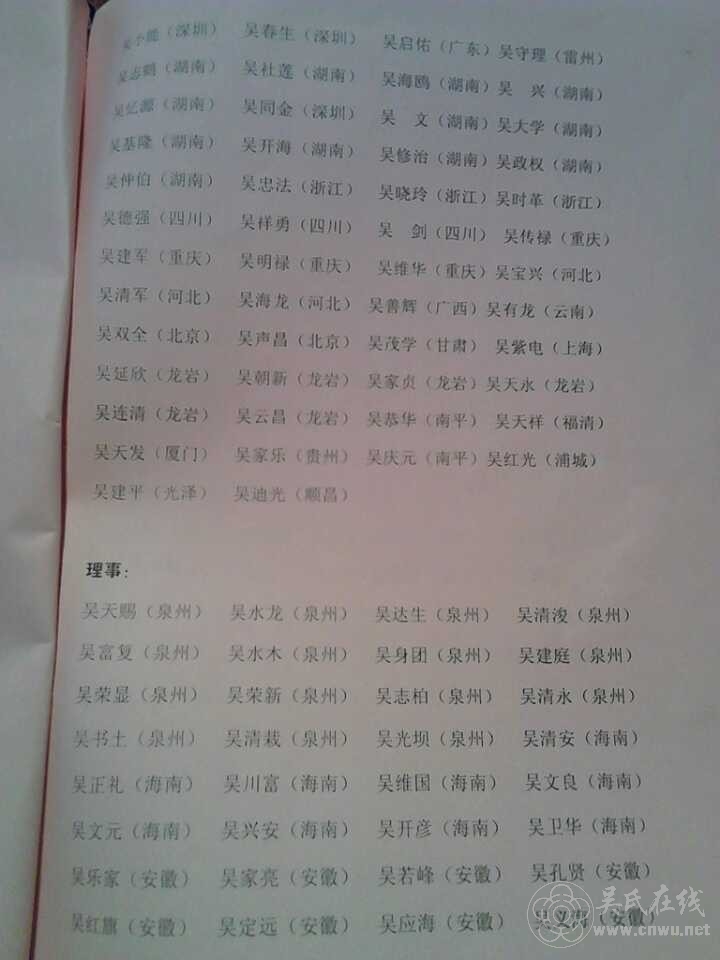 吴小能（深圳） 吴春生（深圳） 吴启佑（广东） 吴守理（雷州）
吴志鹤（湖南） 吴社莲（湖南） 吴海鸥（湖南） 吴 兴（湖南）
吴忆源（湖南） 吴同金（深圳） 吴 文（湖南） 吴大学（湖南）
吴基隆（湖南） 吴开海（湖南） 吴修治（湖南） 吴政权（湖南）
吴仲伯（湖南） 吴忠法（浙江） 吴晓玲（浙江） 吴时革（浙江）
吴德强（四川） 吴祥勇（四川） 吴 剑（四川） 吴传禄（重庆）
吴建军（重庆） 吴明禄（重庆） 吴维华（重庆） 吴宝兴（河北）
吴清军（河北） 吴海龙（河北） 吴善辉（广西） 吴有龙（云南）
吴双全（北京） 吴声昌（北京） 吴茂学（甘肃） 吴紫电（上海）
吴延欣（龙岩） 吴朝新（龙岩） 吴家贞（龙岩） 吴天永（龙岩）
吴连清（龙岩） 吴云昌（龙岩） 吴恭华（南平） 吴天祥（福清）
吴天发（厦门） 吴家乐（贵州） 吴庆元（南平） 吴红光（浦城）
吴建平（光泽） 吴迪光（顺昌）
理事：
吴天赐（泉州） 吴水龙（泉州） 吴达生（泉州） 吴清浚（泉州）
吴富复（泉州） 吴水木（泉州） 吴身团（泉州） 吴建庭（泉州）
吴荣显（泉州） 吴荣新（泉州） 吴志柏（泉州） 吴清永（泉州）
吴书土（泉州） 吴清栽（泉州） 吴光坝（泉州） 吴清安（海南）
吴正礼（海南） 吴川富（海南） 吴维国（海南） 吴文良（海南）
吴文元（海南） 吴兴安（海南） 吴开彦（海南） 吴卫华（海南）
吴乐家（安徽） 吴家亮（安徽） 吴若峰（安徽） 吴孔贤（安徽）
吴红旗（安徽） 吴定远（安徽） 吴应海（安徽） 吴义海（安徽）
吴氏在线
www.cnwu.net